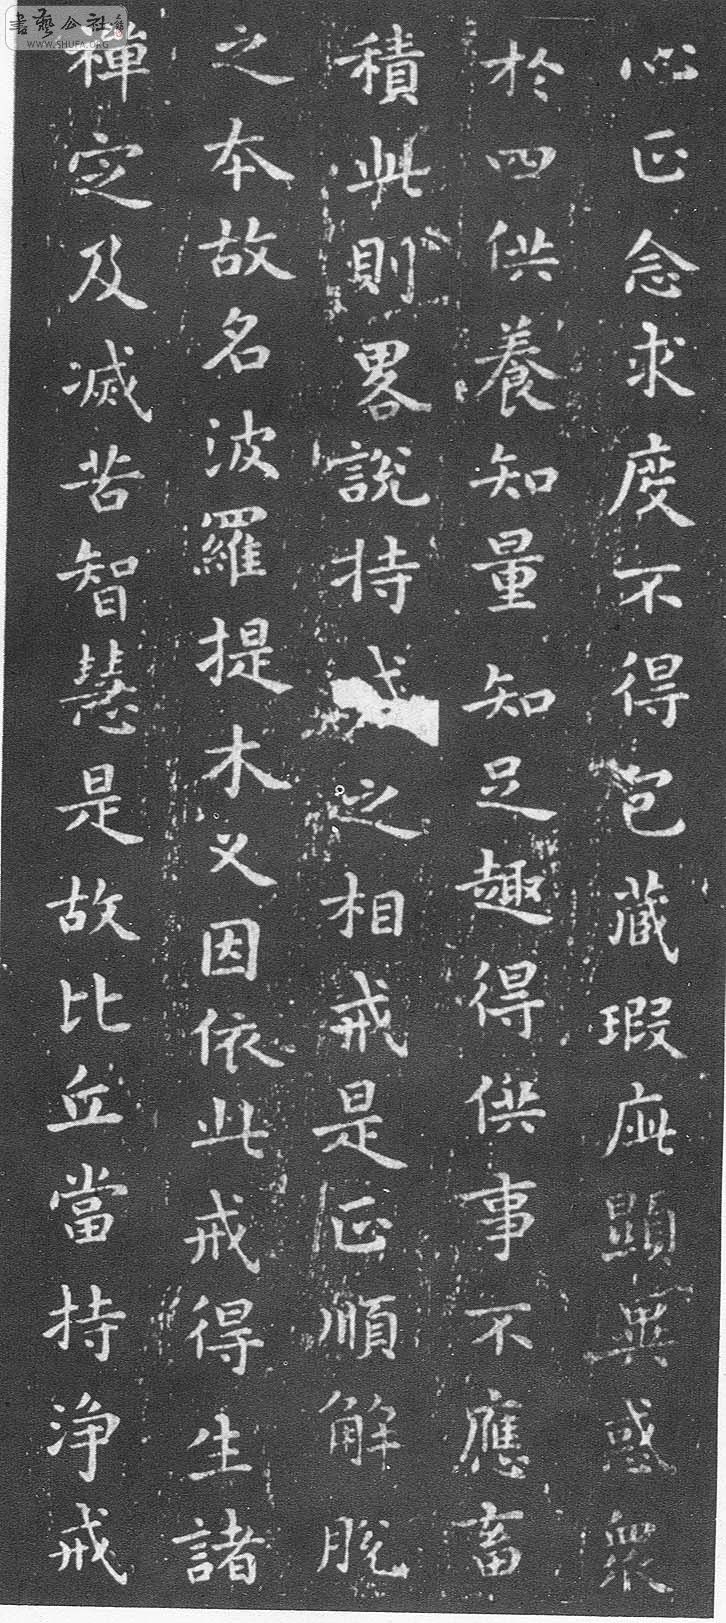 書藝公社
WWW.SHUFA.ORG
心正念求度不得包藏瑕疵顯異惑衆
於四供養知量知足趣得供事不應畜
積此則畧說持之相戒是正順解脫
之本故名波羅提木叉因依此戒得生諸
禪定及滅苦智慧是故比丘當持淨戒